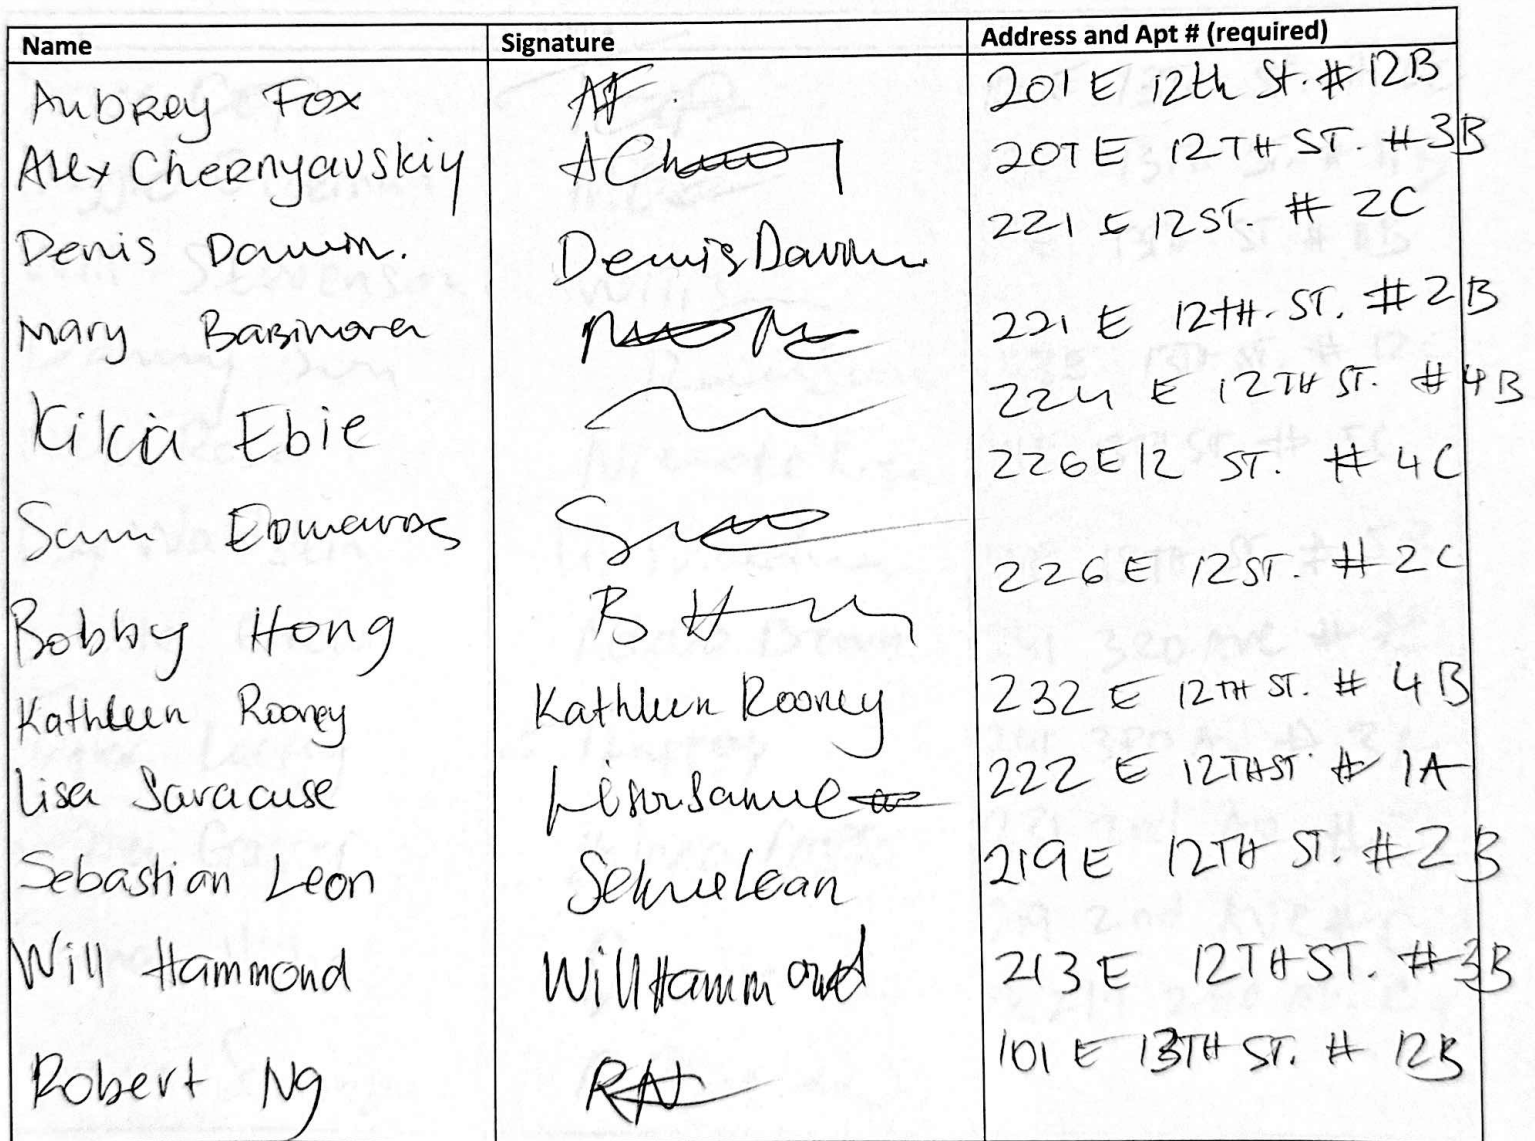 Name Signature Address and Apt # (required)
Aubrey Fox AF. 201 E 12th St. # 12B
Alex Chernyavskiy 207 E 12TH ST. # 3B
Denis Denis 221 E 12 ST. # 2C
Mary Babinova 221 E 12TH. ST. # 2B
Kikia Ebie 224 E 12TH ST. # 4B
Sam Edwards 226 E 12 ST. # 4C
Bobby Hong B H 226 E 12 ST. # 2C
Kathleen Rooney Kathleen Rooney 232 E 12TH ST. # 4B
Lisa Saracuse 222 E 12TH ST # 1A
Sebastian Leon 219 E 12TH ST. # 2B
Will Hammond Will Hammond 213 E 12TH ST. # 3B
Robert Ng RN 101 E 13TH ST. # 12B